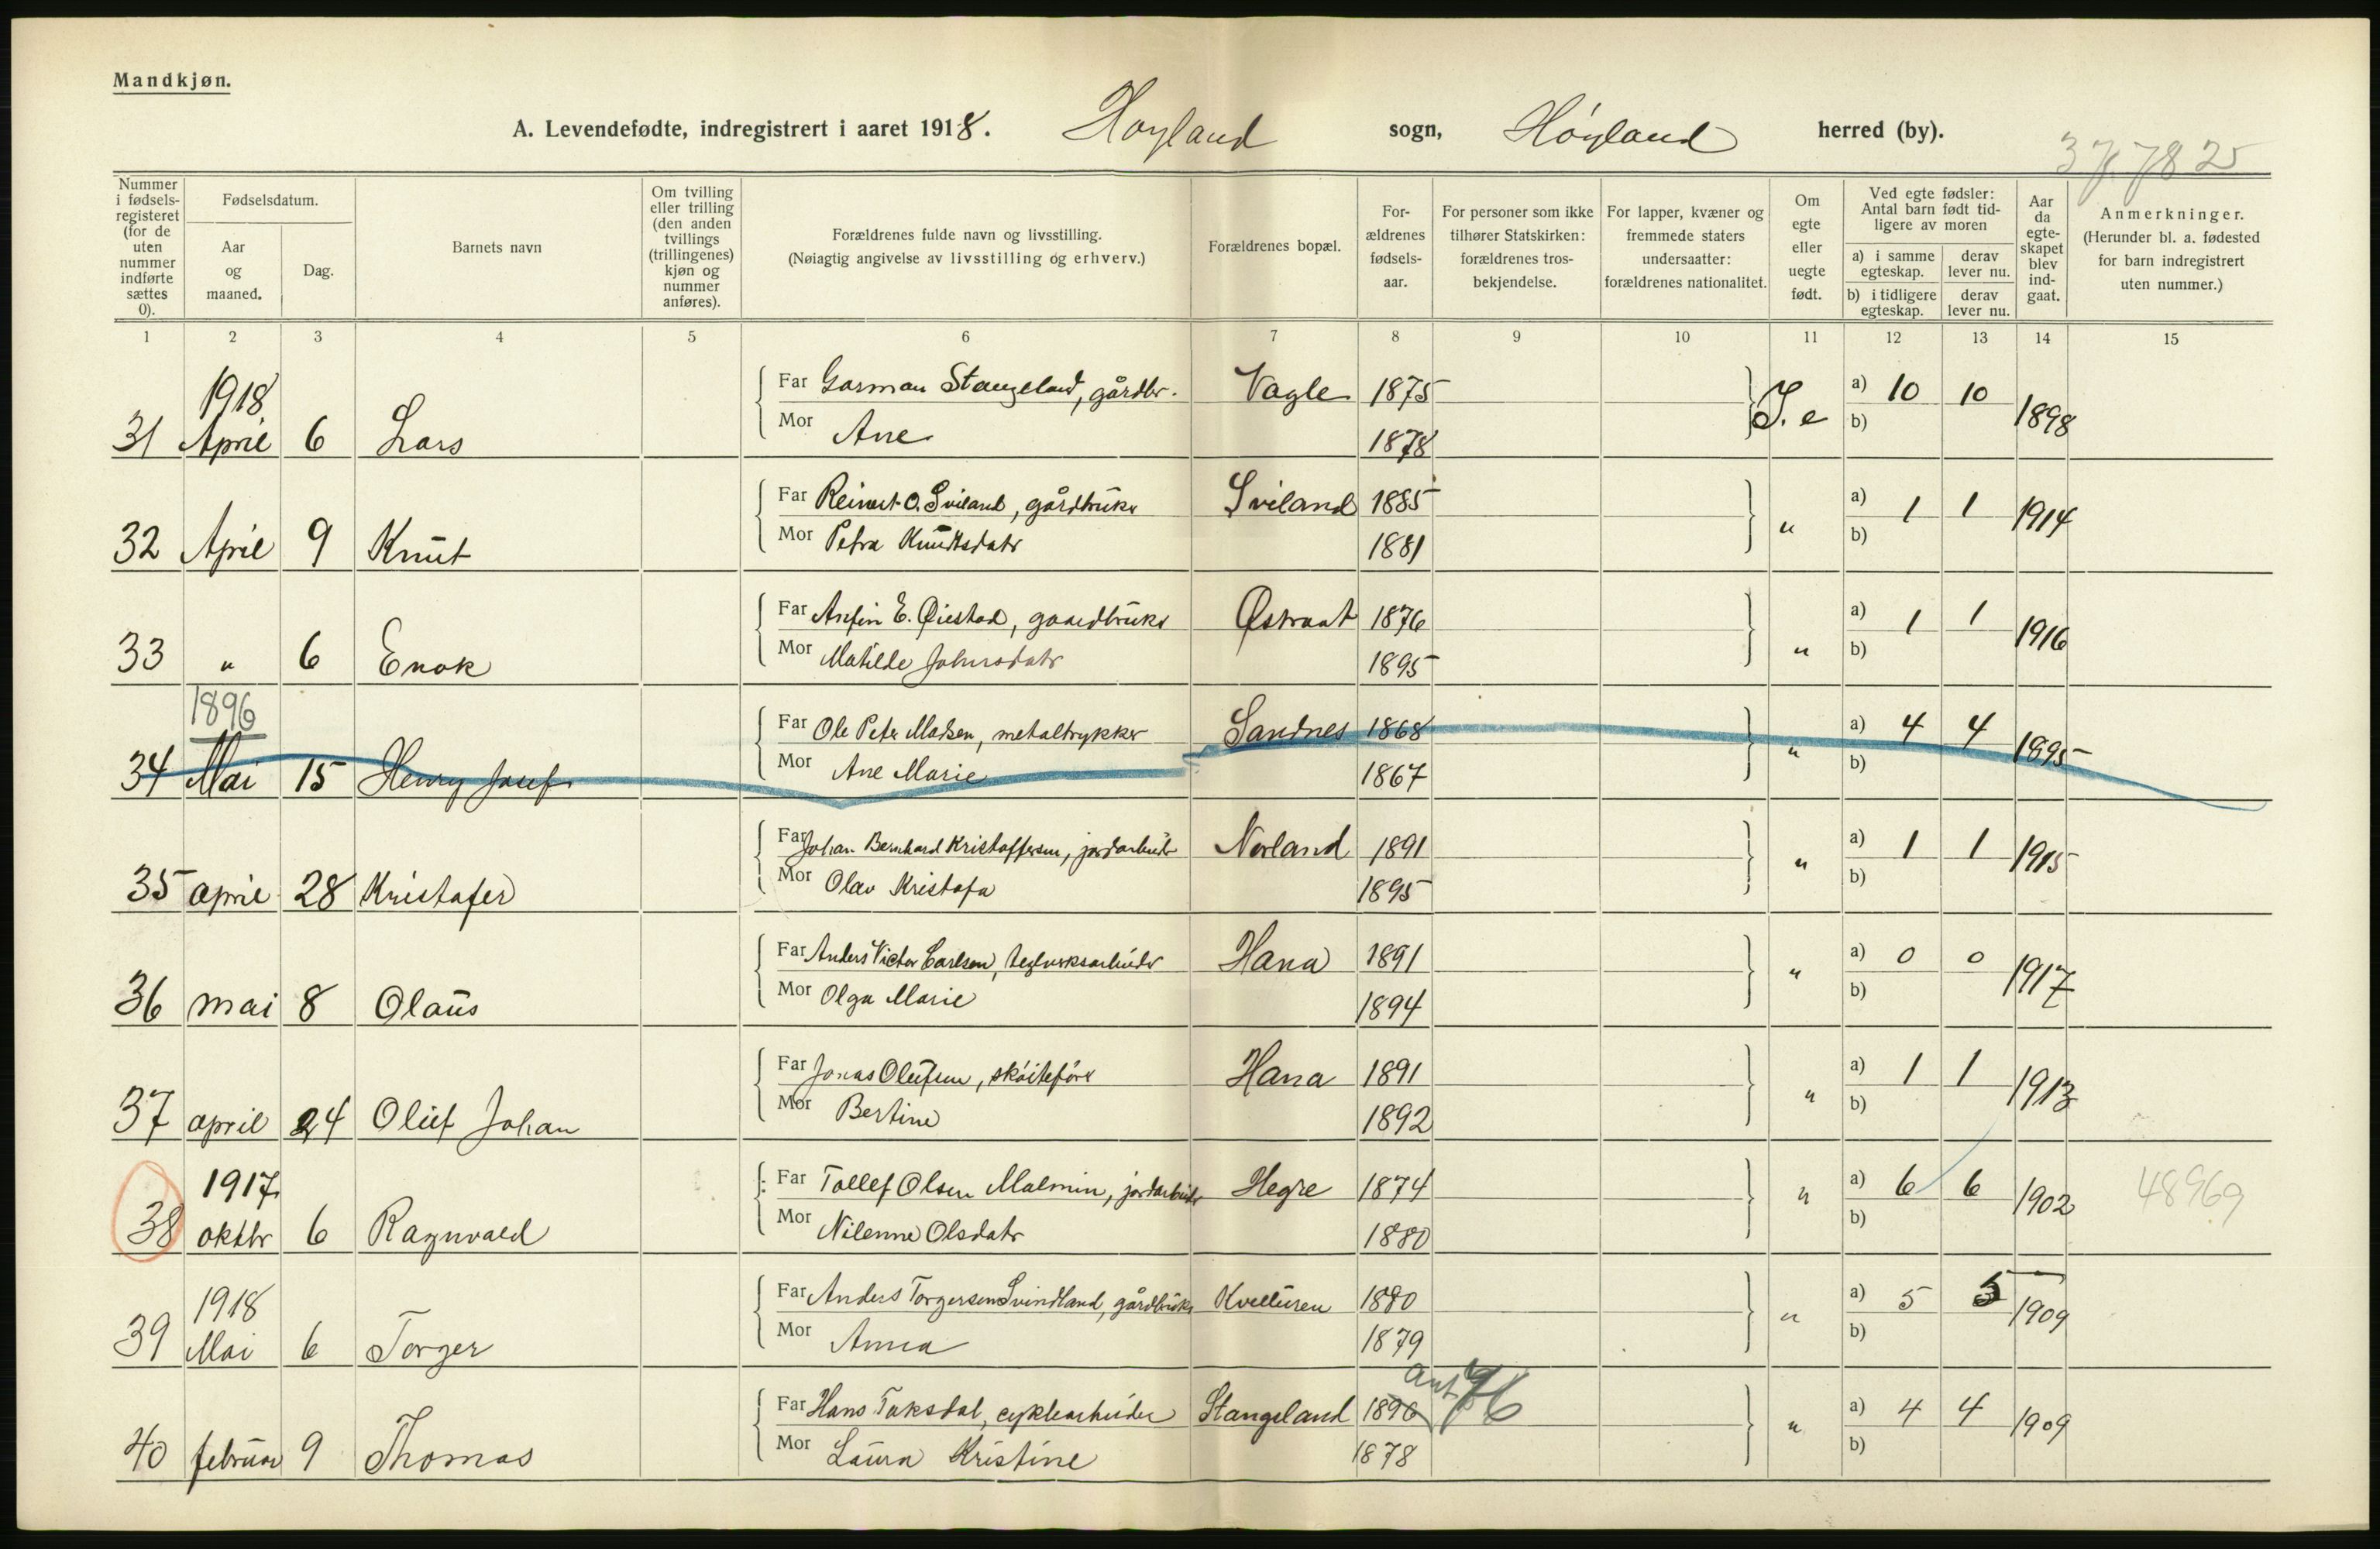 Mandkjøn.
A. Levendefødte, indregistrert i aaret 1918. Høyland sogn, Høyland herred (by).
37,7825
Nummer i fødsels-registeret (for de uten nummer indførte sættes 0).
Fødselsdatum.
Aar og maaned.
Dag.
Barnets navn
Om tvilling eller trilling (den anden tvillings (trillingenes) kjøn og nummer anføres).
Forældrenes fulde navn og livsstilling.
(Nøiagtig angivelse av livsstilling og erhverv.)
Forældrenes bopæl.
For-ældrenes fødsels-aar.
For personer som ikke tilhører Statskirken: forældrenes tros-bekjendelse.
For lapper, kvæner og fremmede staters undersaatter: forældrenes nationalitet.
Om egte eller uegte født.
Ved egte fødsler: Antal barn født tid-ligere av moren
a) i samme egteskap. derav lever nu.
b) i tidligere egteskap. derav lever nu.
Aar da egte-skapet blev ind-gaat.
Anmerkninger.
(Herunder bl. a. fødested for barn indregistrert uten nummer.)
1 2 3 4 5 6 7 8 9 10 11 12 13 14 15
1918
Far Garman Stangeland, gårdbr. Vagle 1875 a) 10 10
31 April 6 Lars Mor Ane 1878 I. e b) 1898
Far Reinert O. Sviland, gårdbruker Sviland 1885 a) 1 1
32 April 9 Knut Mor Petra Knudtsdatr 1881 " b) 1914
Far Anfin E. Øiestad, gaardbruker Østraat 1876 a) 1 1
33 " 6 Enok Mor Matilde Johnsdatr 1895 " b) 1916
1896
Far Ole Peter Madsen, metaltrykker Sandnes 1868 a) 4 4
34 Mai 15 Henry Josef Mor Ane Marie 1867 " b) 1895
Far Johan Bernhard Kristoffersen, jordarbeider Norland 1891 a) 1 1
35 april 28 Kristofer Mor Olav Kristofa 1895 " b) 1915
Far Anders Victor Carlsen, teglverksarbeider Hana 1891 a) 0 0
36 mai 8 Olaus Mor Olga Marie 1894 " b) 1917
Far Jonas Olufsen, skøitefører Hana 1891 a) 1 1
37 april 24 Oluf Johan Mor Bertine 1892 " b) 1913
1917
Far Tollef Olsen Malmin, jordarbeider Hegre 1874 a) 6 6 48969
38 oktbr 6 Ragnvald Mor Nilenne Olsdatr 1880 " b) 1902
1918
Far Anders Torgersen Svindland, gårdbruker Kvelluren 1880 a) 5 5
39 Mai 6 Torger Mor Anna 1879 " b) 1909
ant. 76
Far Hans Taksdal, cyklearbeider Stangeland 1896 a) 4 4
40 februar 9 Thomas Mor Laura Kristine 1878 " b) 1909